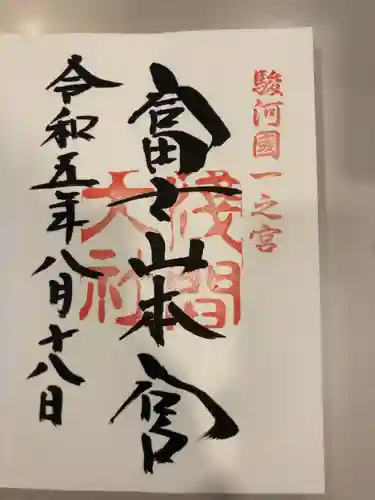 駿河國一之宮
富士山本宮
浅間大社
令和五年八月十八日